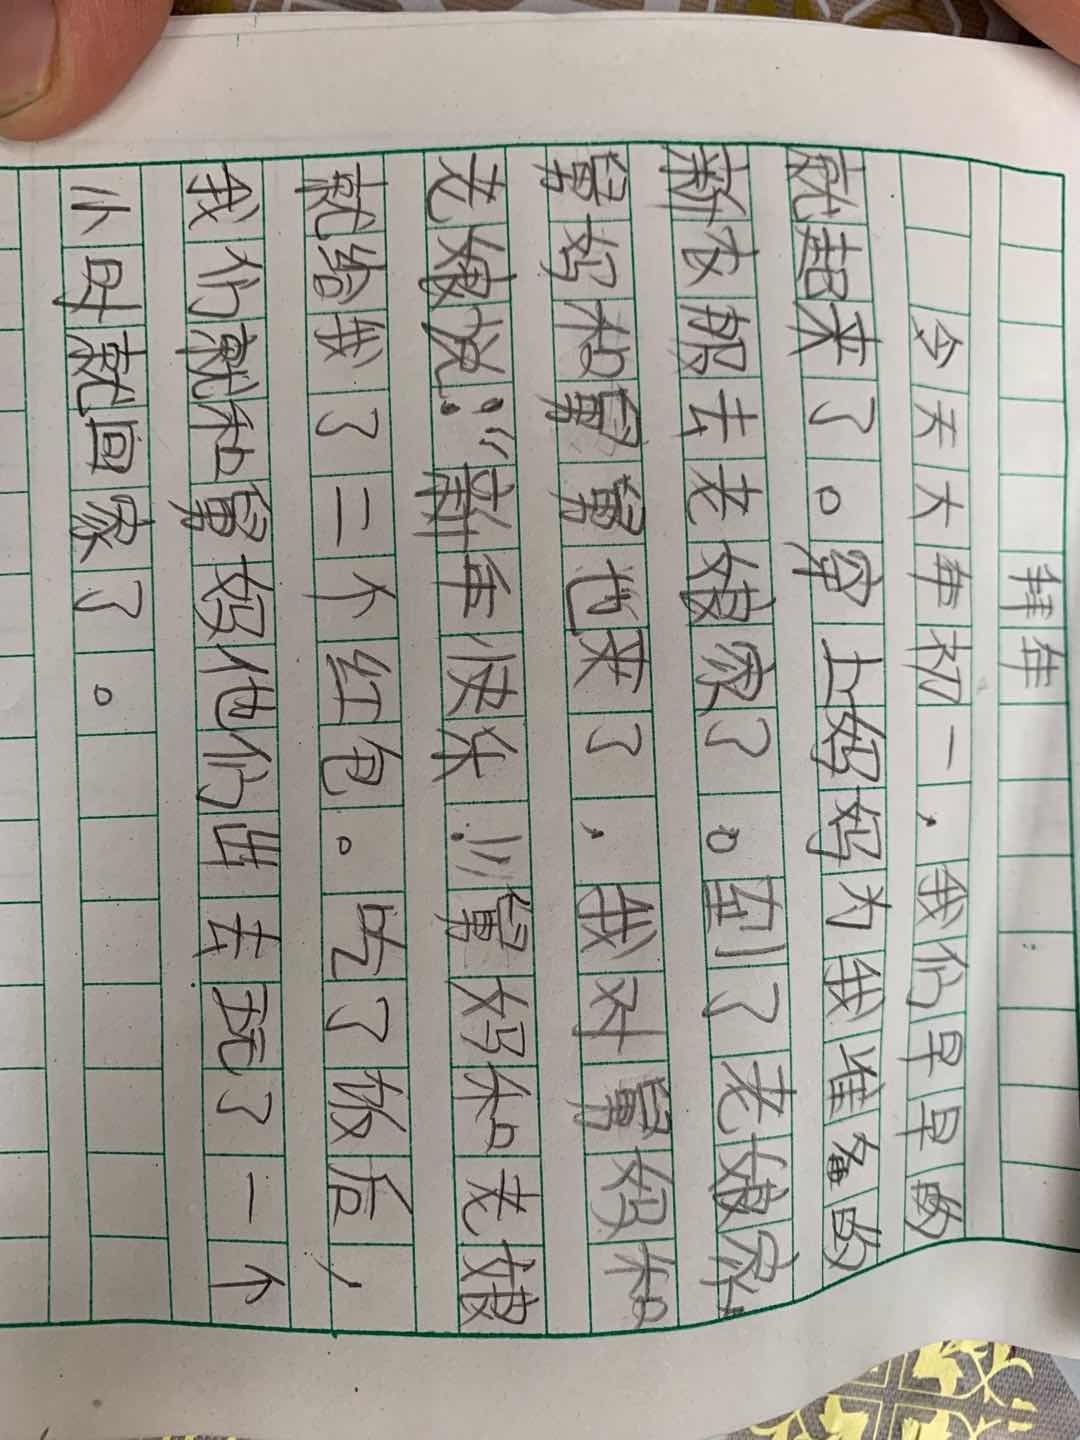 拜年
今天大年初一，我们早早的
就起来了。穿上妈妈为我准备的
新衣服去老娘家了。到了老娘家，
舅妈和舅舅也来了，我对舅妈和
老娘说：“新年快乐！”舅妈和老娘
就给我了二个红包。吃了饭后，
我们就和舅妈他们出去玩了一个
小时就回家了。